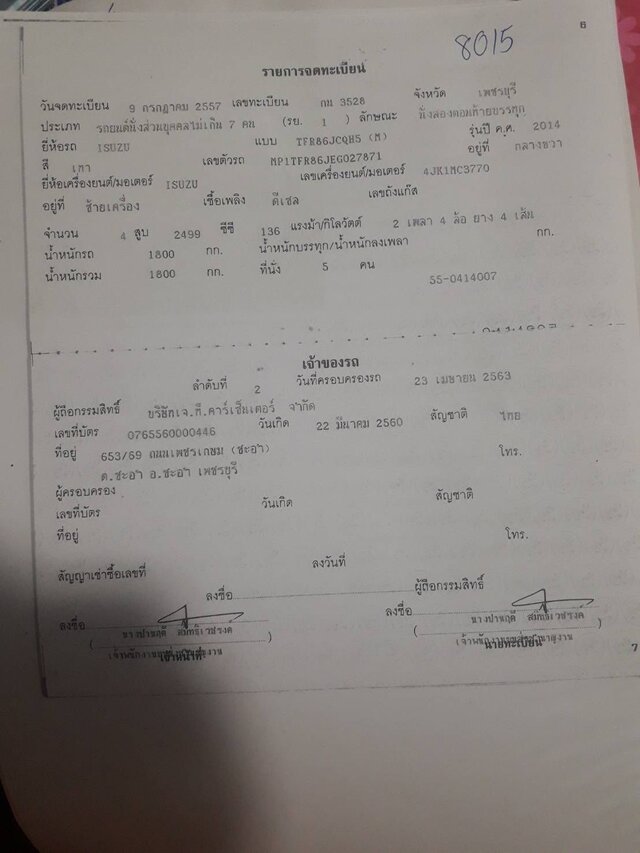 8015
6
รายการจดทะเบียน
วันจดทะเบียน 9 กรกฎาคม 2557 เลขทะเบียน กน 3528 จังหวัด เพชรบุรี
ประเภท รถยนต์นั่งส่วนบุคคลไม่เกิน 7 คน (รย. 1 ) ลักษณะ นั่งสองตอนท้ายบรรทุก
ยี่ห้อรถ ISUZU แบบ TFR86JCQH5 (M) รุ่นปี ค.ศ. 2014
สี เทา เลขตัวรถ MP1TFR86JEG027871 อยู่ที่ กลางขวา
ยี่ห้อเครื่องยนต์/มอเตอร์ ISUZU เลขเครื่องยนต์/มอเตอร์ 4JK1MC3770
อยู่ที่ ซ้ายเครื่อง เชื้อเพลิง ดีเซล เลขถังแก๊ส
จำนวน 4 สูบ 2499 ซีซี 136 แรงม้า/กิโลวัตต์ 2 เพลา 4 ล้อ ยาง 4 เส้น
น้ำหนักรถ 1800 กก. น้ำหนักบรรทุก/น้ำหนักลงเพลา กก.
น้ำหนักรวม 1800 กก. ที่นั่ง 5 คน
55-0414007
เจ้าของรถ
ลำดับที่ 2 วันที่ครอบครองรถ 23 เมษายน 2563
ผู้ถือกรรมสิทธิ์ บริษัทเจ.ที.คาร์เซ็นเตอร์ จำกัด
เลขที่บัตร 0765560000446 วันเกิด 22 มีนาคม 2560 สัญชาติ ไทย
ที่อยู่ 653/69 ถนนเพชรเกษม (ชะอำ) โทร.
ต.ชะอำ อ.ชะอำ เพชรบุรี
ผู้ครอบครอง
เลขที่บัตร วันเกิด สัญชาติ
ที่อยู่ โทร.
สัญญาเช่าซื้อเลขที่ ลงวันที่
ลงชื่อ ผู้ถือกรรมสิทธิ์
ลงชื่อ ลงชื่อ
เจ้าหน้าที่ นายทะเบียน
7